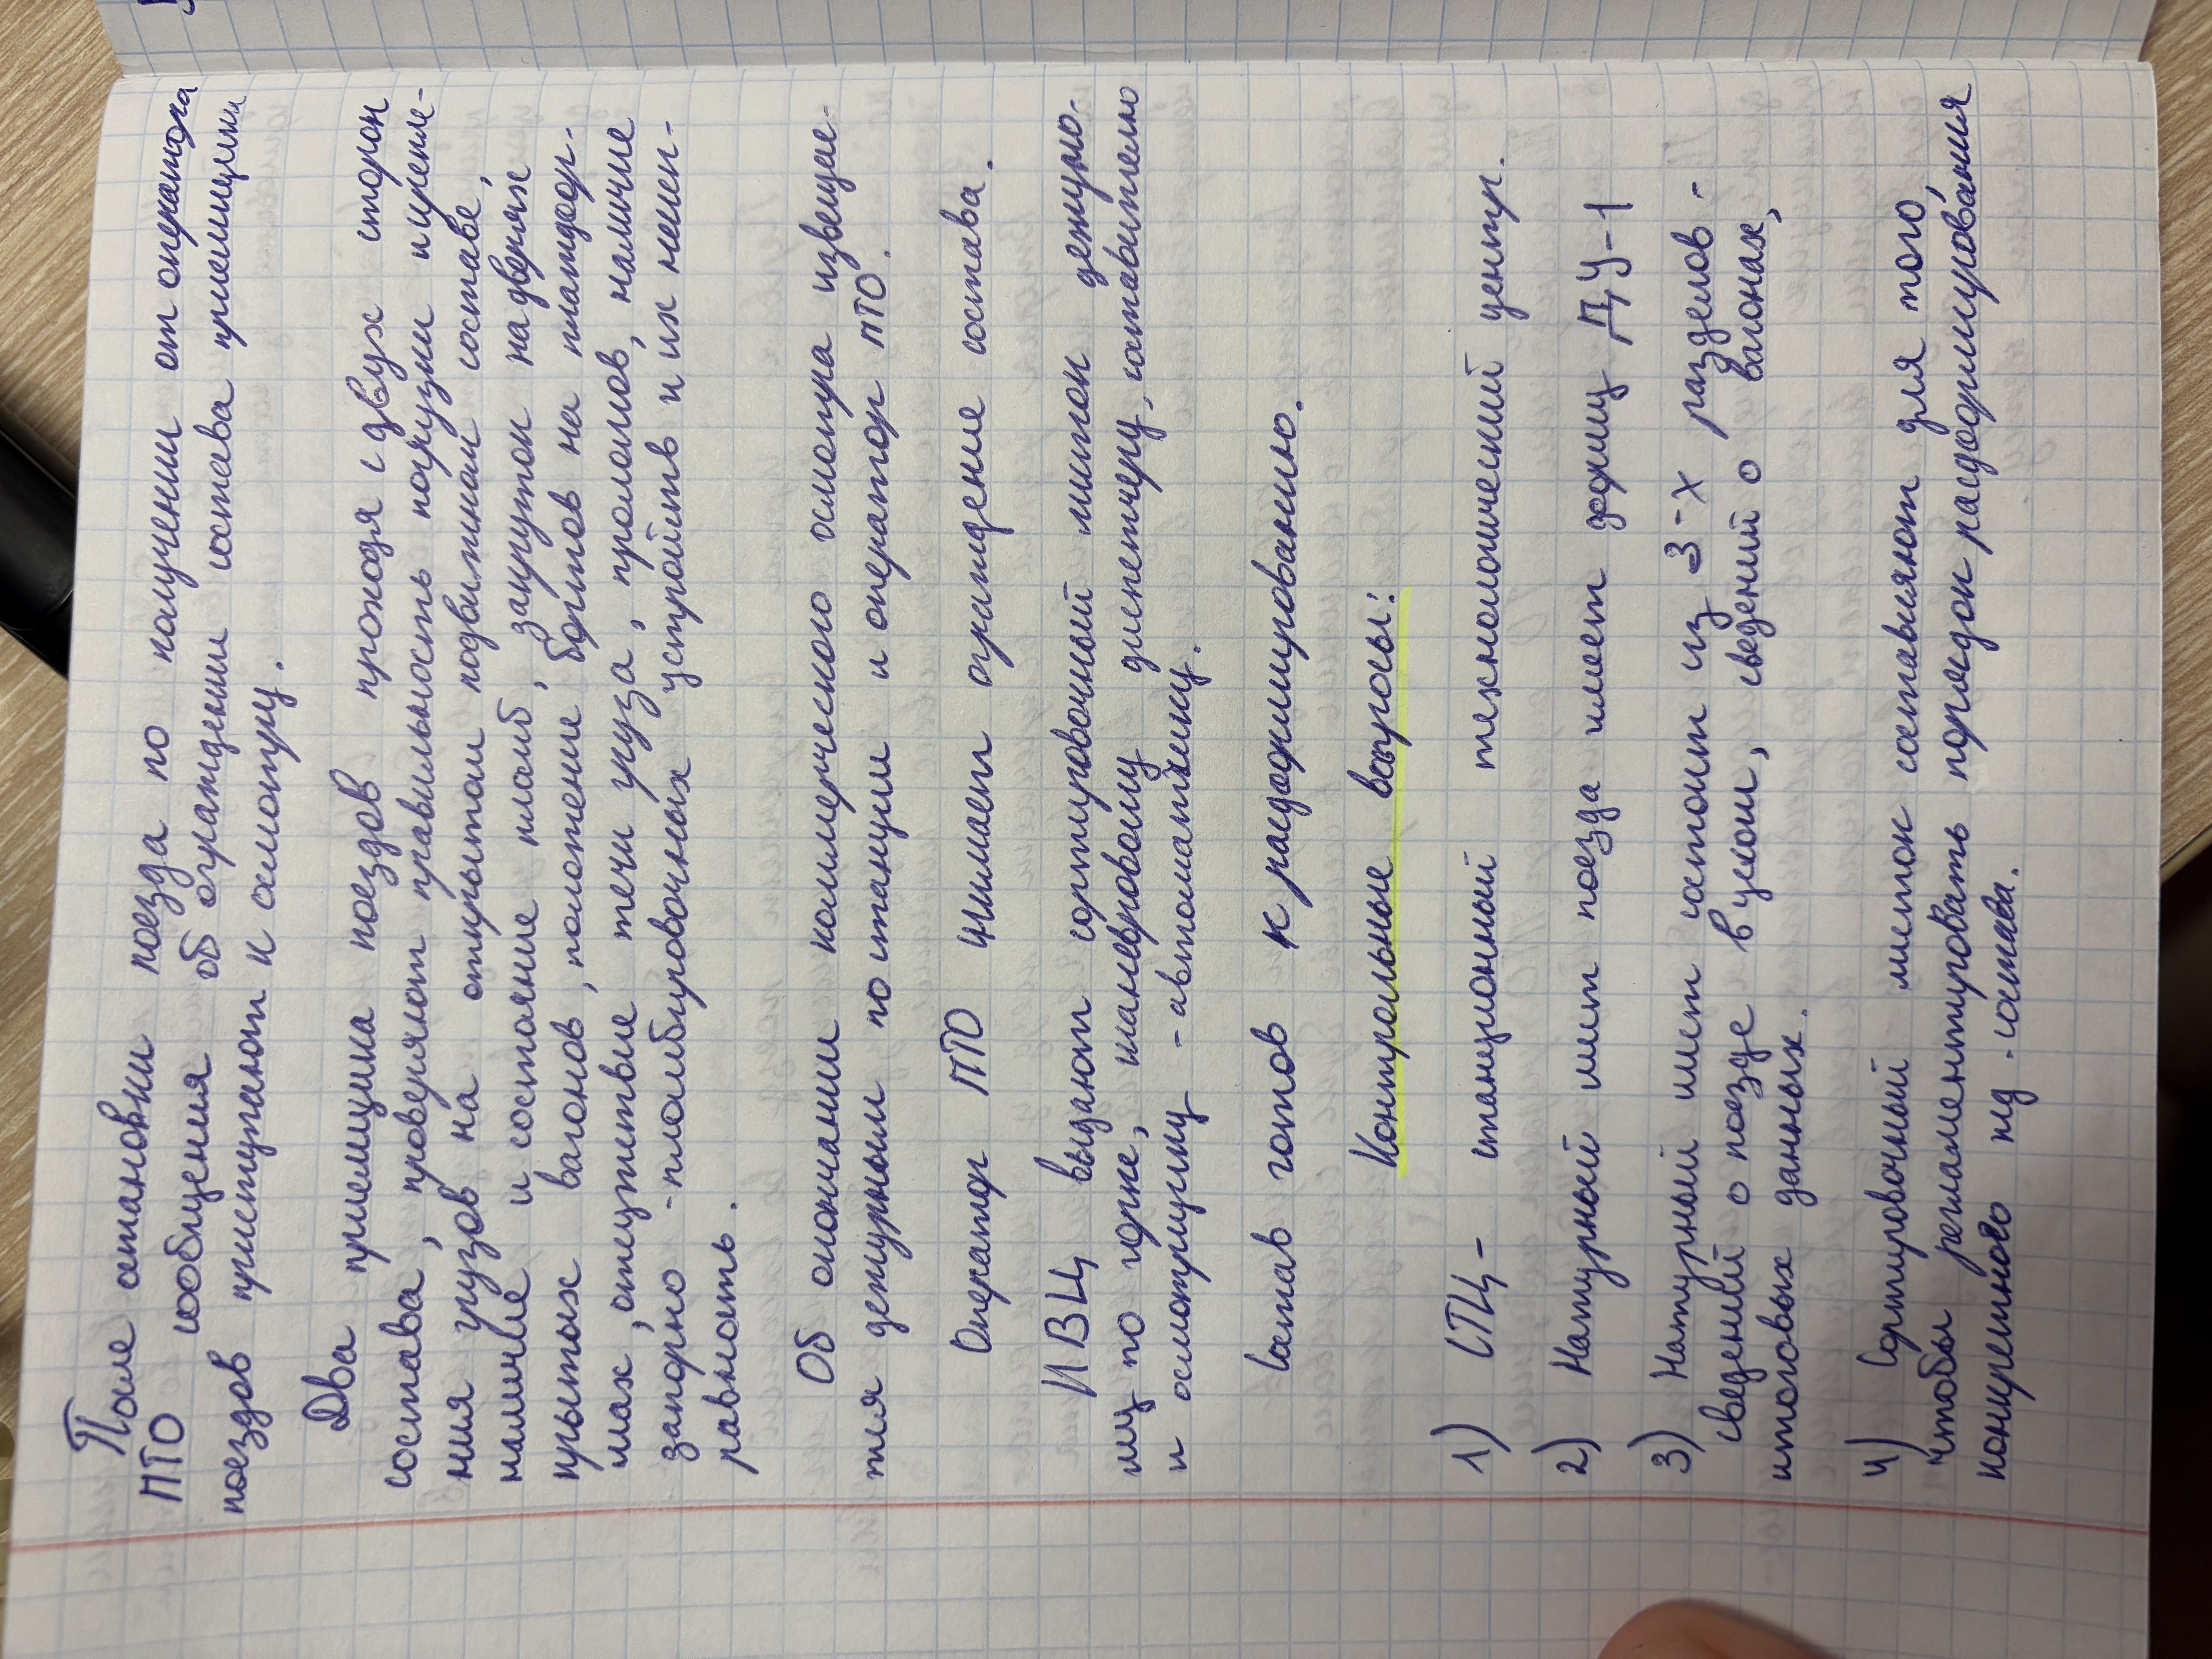 После остановки поезда по получении от оператора
ПТО сообщения об ограждении состава приемщики
поездов приступают к осмотру.
Два приемщика поездов проходя с двух сторон
состава, проверяют правильность погрузки и крепле-
ния грузов на открытом подвижном составе,
наличие и состояние пломб, закруток на дверях
крытых вагонов, положение бортов на платфор-
мах, отсутствие течи груза, проломов, наличие
запорно-пломбировочных устройств и их неис-
равность.
Об окончании коммерческого осмотра извещае-
тся дежурным по станции и оператор ПТО.
Оператор ПТО снимает ограждение состава.
ИВЦ выдают сортировочный листок дежурно-
му по горке, маневровому диспетчеру, составителю
и осмотрщику - автоматчику.
Состав готов к расформированию.
Контрольные вопросы:
1) СТЦ- станционный технологический центр.
2) Натурный лист поезда имеет формы ДУ-1
3) Натурный лист состоит из 3-х разделов -
сведений о поезде в целом, сведений о вагонах,
итоговых данных.
4) Сортировочный листок составляют для того,
чтобы регламентировать порядок расформирования
конкретного ПД. состава.